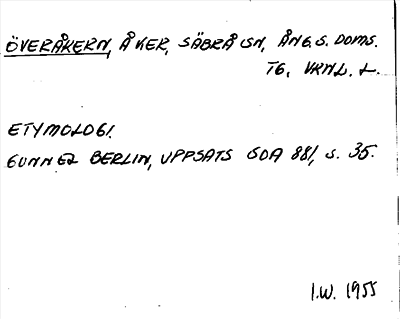 ÖVERÅKERN, ÅKER, SÄBRÅ SN, ÅNG.S. DOMS.
TG, VRNL. L.
ETYMOLOGI.
GUNNEL BERLIN, UPPSATS SOA 881, S. 35.
I.W. 1955